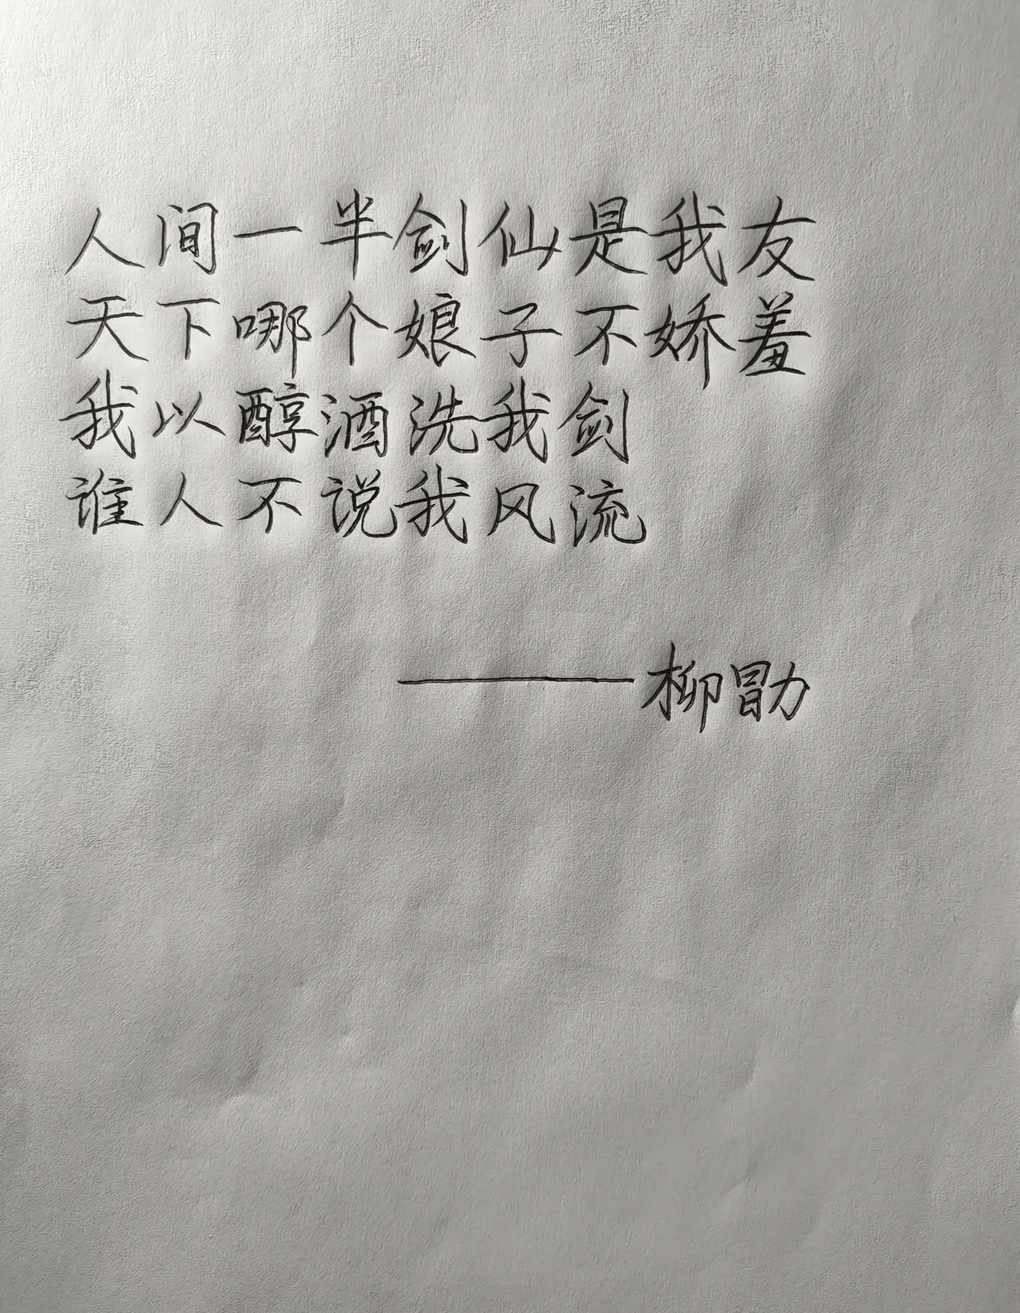 人间一半剑仙是我友
天下哪个娘子不娇羞
我以醇酒洗我剑
谁人不说我风流
——柳勖